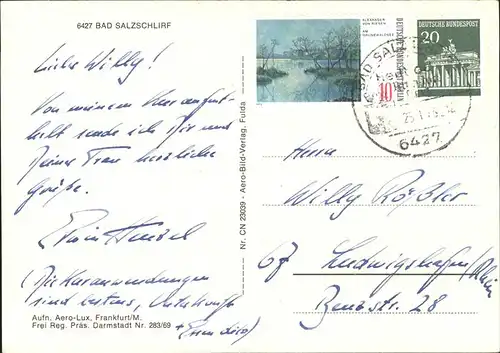 6427 BAD SALZSCHLIRF
Lieber Willy!
Von meinem Kuraufent-
halt sende ich Dir und
Deiner Frau herzliche
Grüße.
(Die Kuranwendungen
sind bestens, Unterkunft
+ Essen dito)
Aufn. Aero-Lux, Frankfurt/M.
Frei Reg. Präs. Darmstadt Nr. 283/69
Nr. CN 23039 - Aero-Bild-Verlag, Fulda
ALEXANDER
VON RIESEN
AM
GRUNEWALDSEE
DEUTSCHE BUNDESPOST
BERLIN
10
DEUTSCHE BUNDESPOST
20
BAD SALZ
6427
Herrn
Willy Rößler
67 Ludwigshafen/Rhein
Benzstr. 28